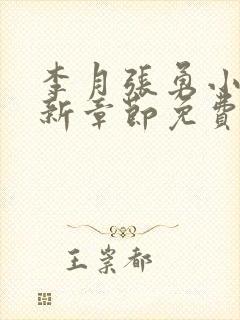 李月張勇小
新章節免費
王崇都